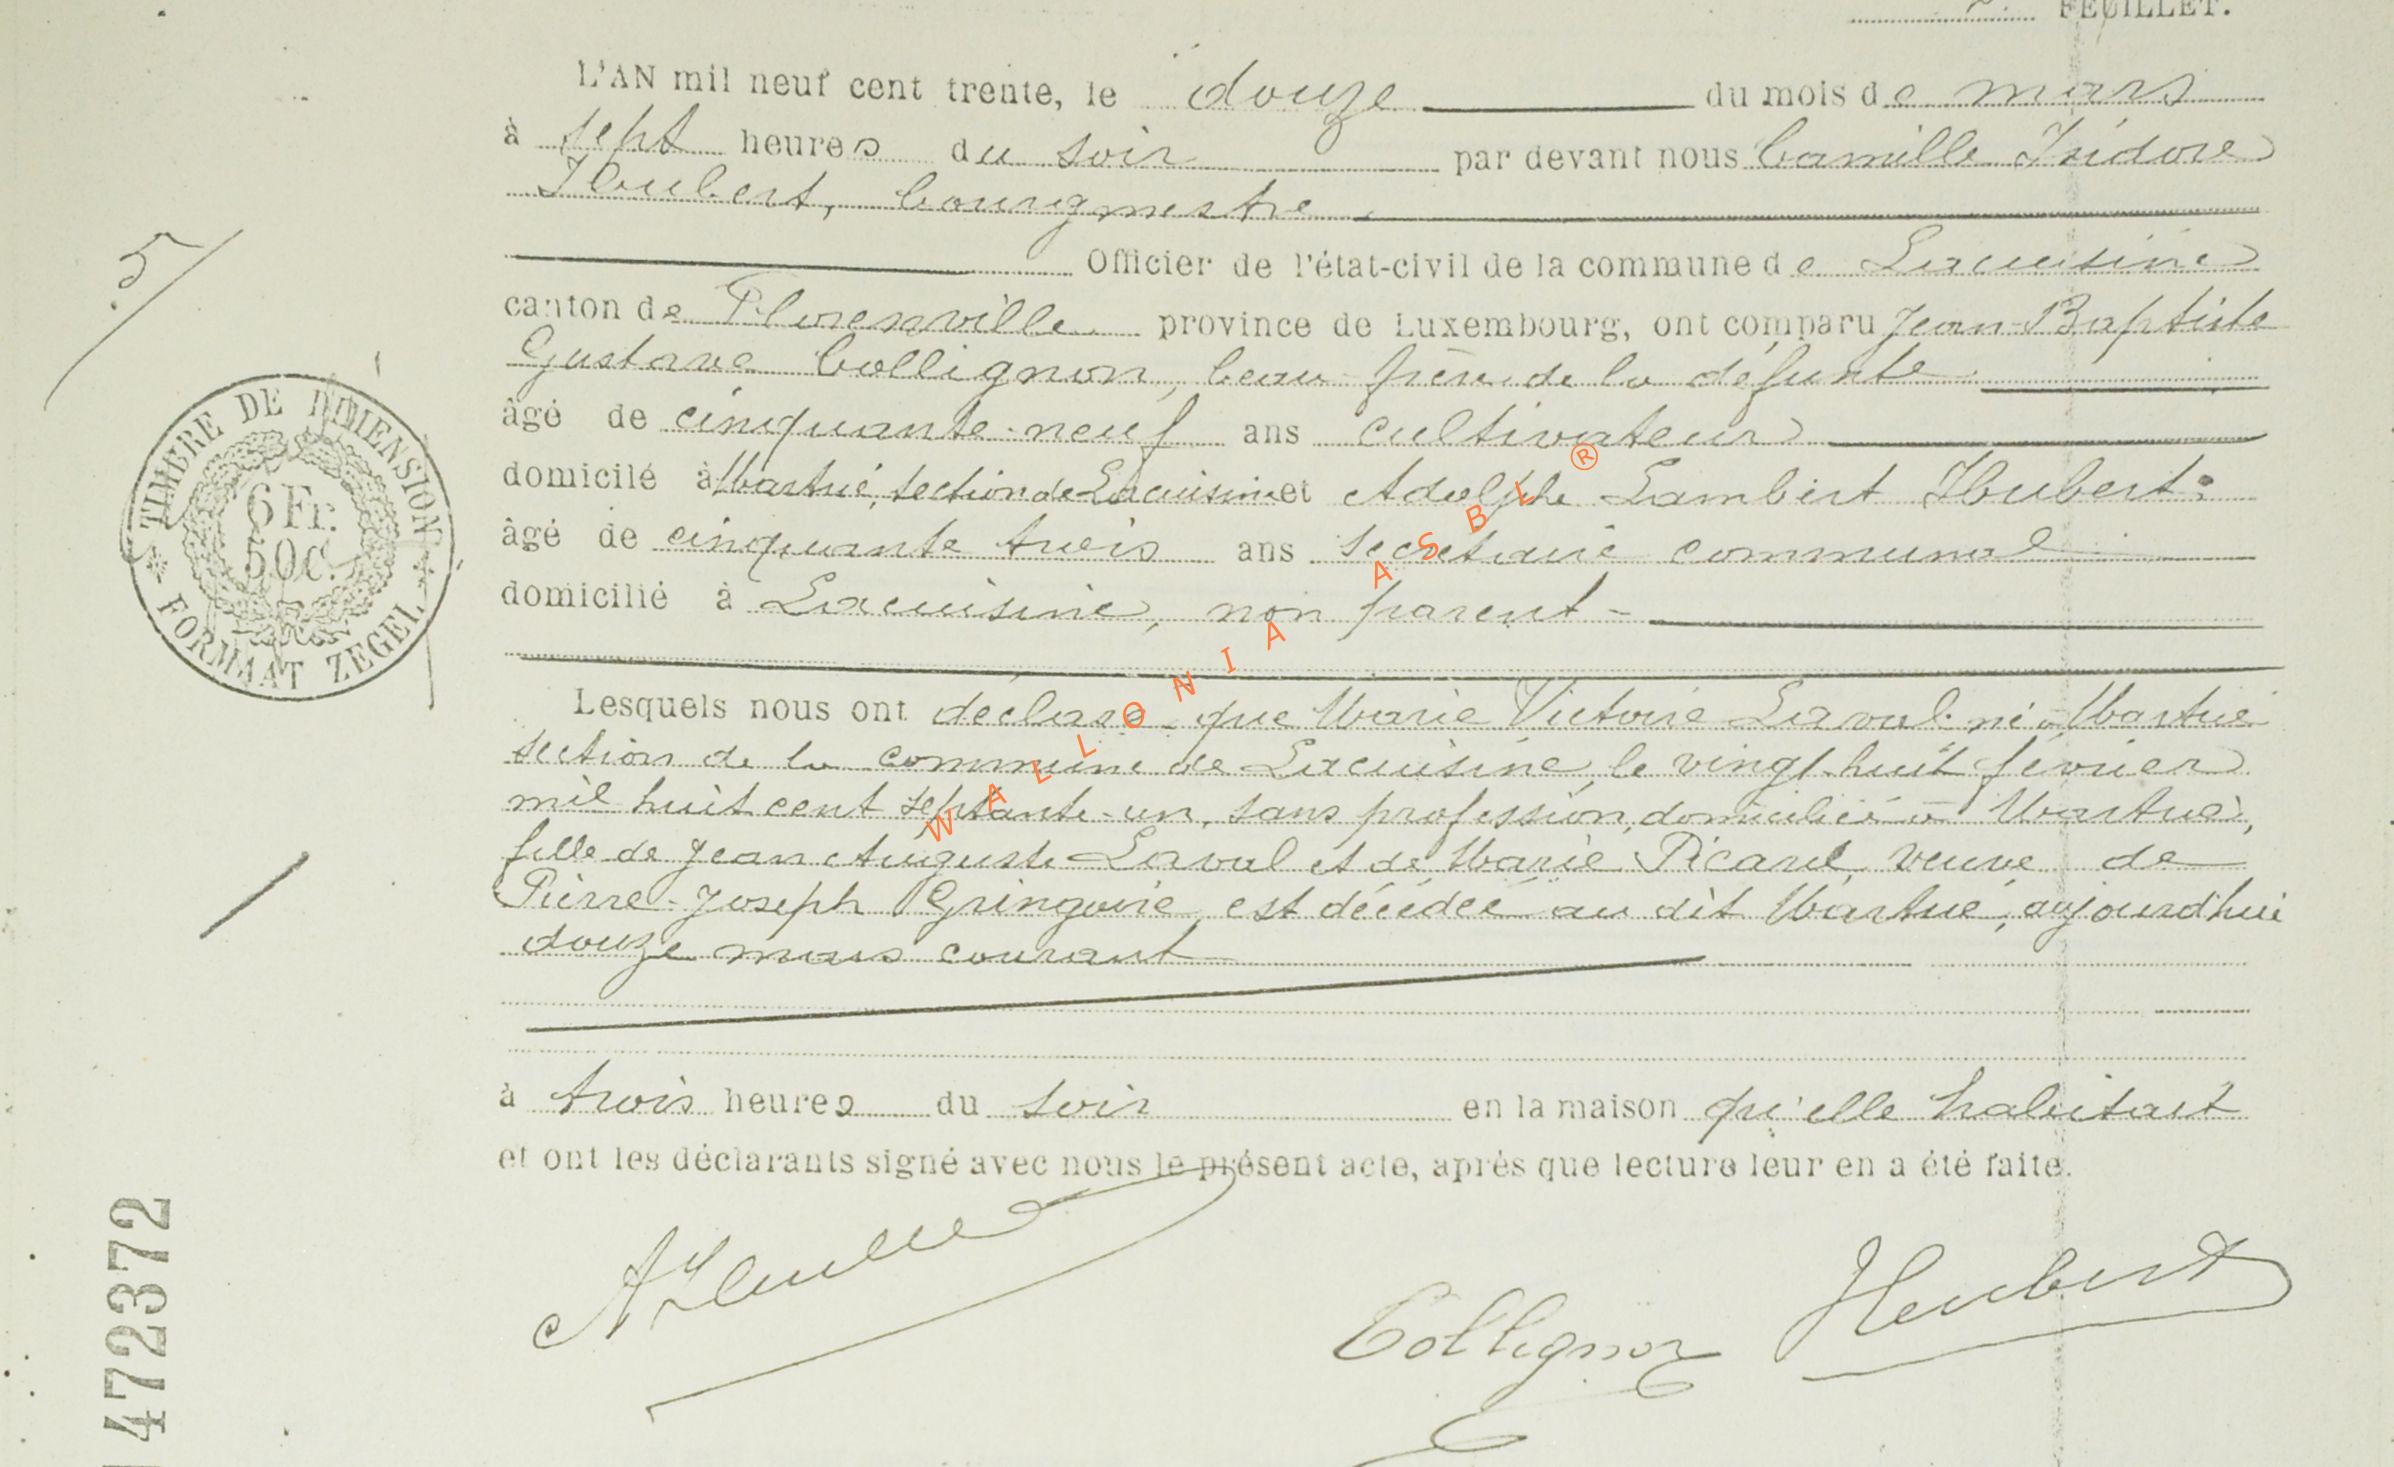 FEUILLET.
L'AN mil neuf cent trente, le douze du mois de mars
à sept heures du soir par devant nous Camille Isidore
Hubert, bourgmestre
Officier de l'état-civil de la commune de Lacuisine
canton de Florenville province de Luxembourg, ont comparu Jean-Baptiste
Gustave Collignon, beau-frère de la défunte
âgé de cinquante-neuf ans cultivateur
domicilé à Martué, section de Lacuisine et Adolphe Lambert Hubert
âgé de cinquante trois ans secrétaire communal
domicilié à Lacuisine, non parent
Lesquels nous ont déclaré que Marie Victoire Laval né à Martué
section de la commune de Lacuisine, le vingt-huit février
mil huit cent septante-un, sans profession, domiciliée à Martué,
fille de Jean Auguste Laval et de Marie Picard, veuve de
Pierre-Joseph Gringoire, est décédée au dit Martué, aujourd'hui
douze mars courant
à trois heures du soir en la maison qu'elle habitait
et ont les déclarants signé avec nous le présent acte, après que lecture leur en a été faite.
Collignon Hubert
5/
TIMBRE DE DIMENSION
6 Fr.
50c.
FORMAAT ZEGEL
472372
WALLONIA ASBL ®